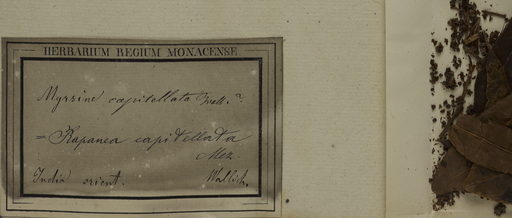 HERBARIUM REGIUM MONACENSE
Myrsine capitellata Wall.
= Rapanea capitellata
Mez.
India orient. Wallich.